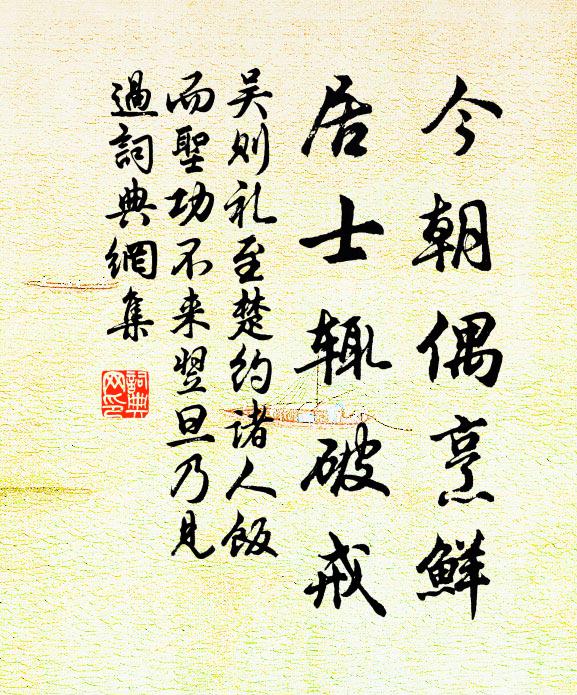 今朝偶烹鮮
居士輒破戒
吴则礼至楚约诸人飯
而聖功不来翌旦乃見
過詞典網集
詞典
网印